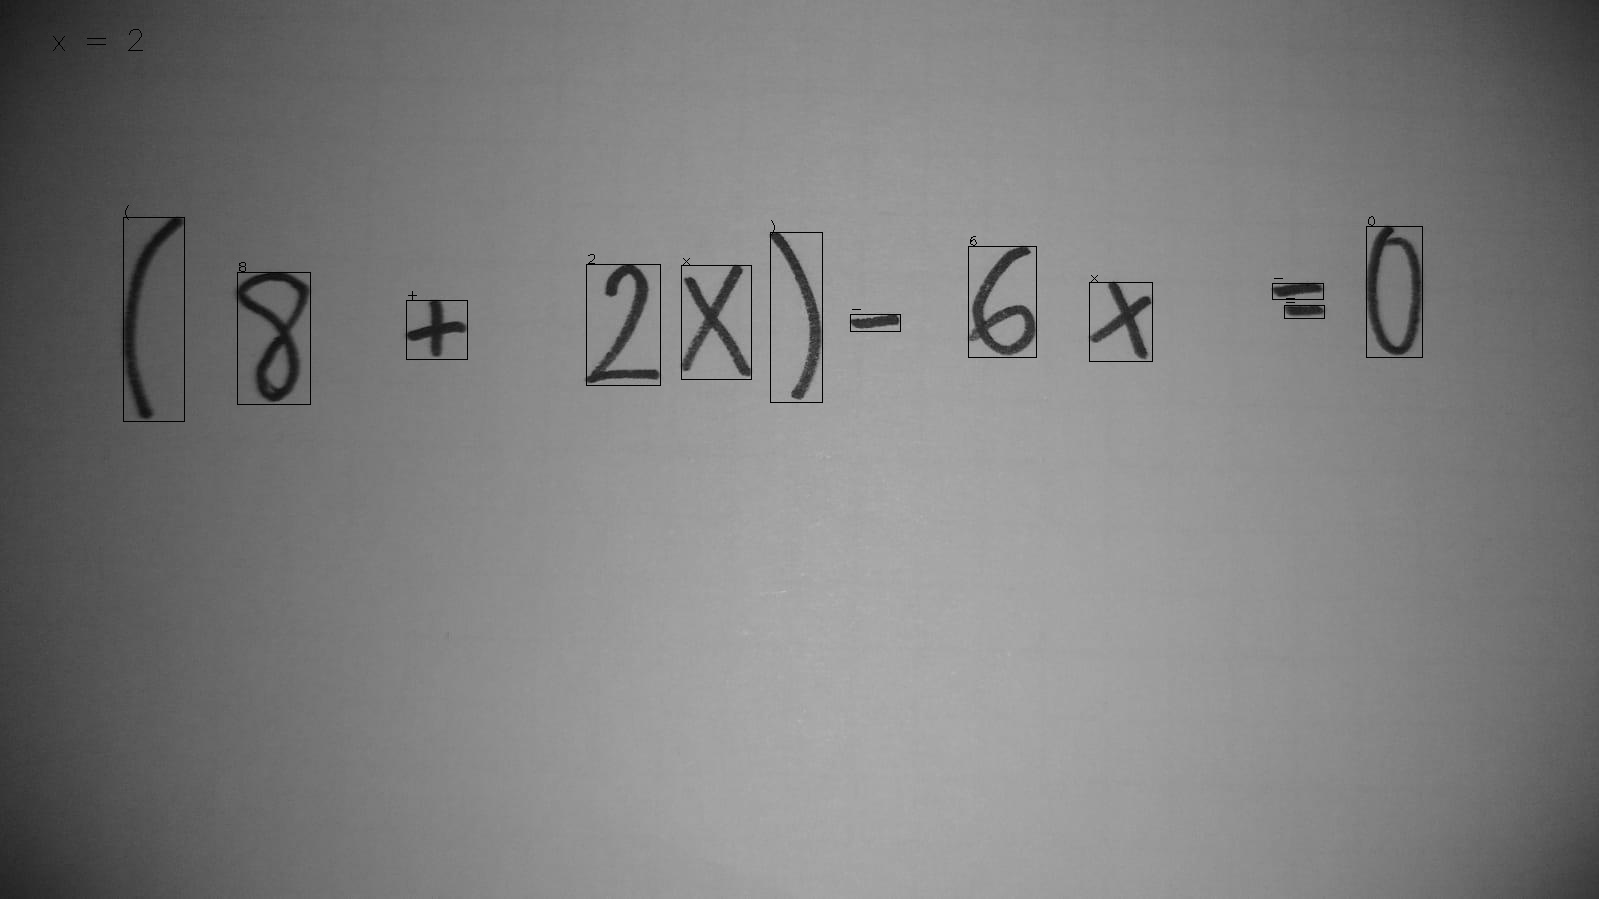 x = 2
( 8 + 2 x ) - 6 x - = 0
(8 + 2x) - 6x = 0